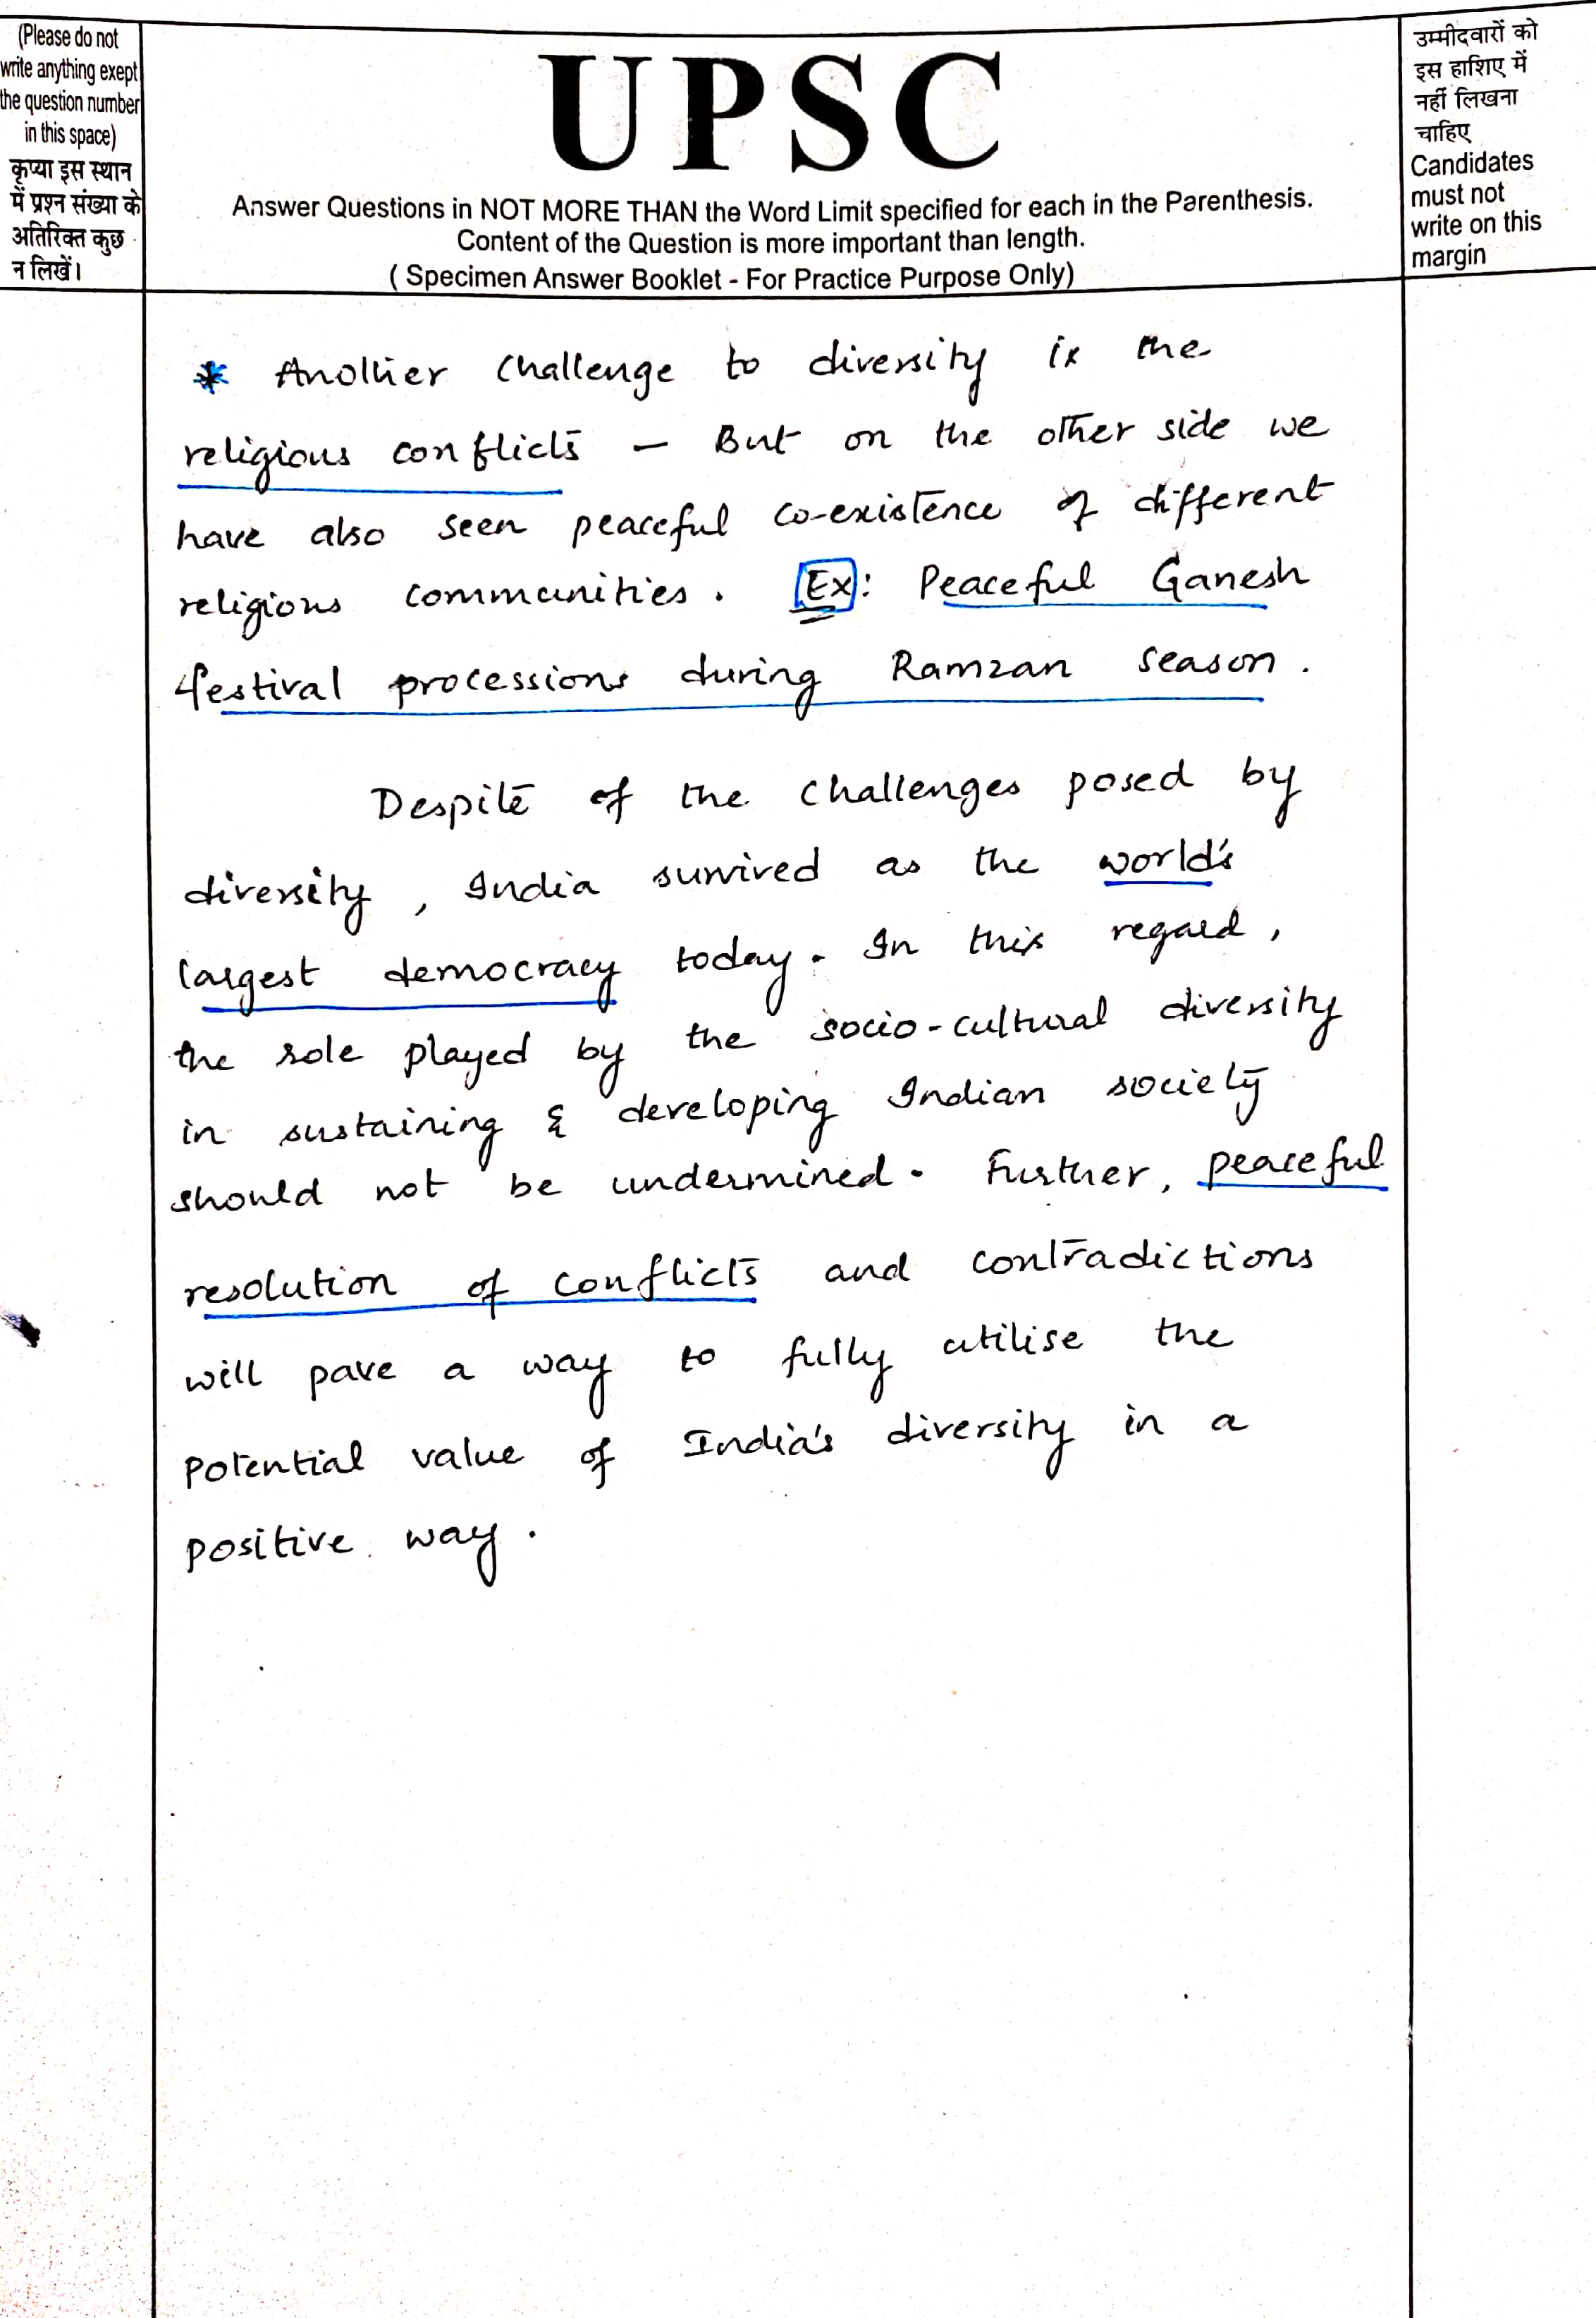 (Please do not
write anything exept
the question number
in this space)
कृप्या इस स्थान
में प्रश्न संख्या के
अतिरिक्त कुछ
न लिखें।
UPSC
Answer Questions in NOT MORE THAN the Word Limit specified for each in the Parenthesis.
Content of the Question is more important than length.
( Specimen Answer Booklet - For Practice Purpose Only)
उम्मीदवारों को
इस हाशिए में
नहीं लिखना
चाहिए
Candidates
must not
write on this
margin
* Another challenge to diversity is the
religious conflicts – But on the other side we
have also seen peaceful co-existence of different
religious communities. Ex: Peaceful Ganesh
festival processions during Ramzan season.
Despite of the challenges posed by
diversity, India survived as the world's
largest democracy today. In this regard,
the role played by the socio-cultural diversity
in sustaining & developing Indian society
should not be undermined. Further, peaceful
resolution of conflicts and contradictions
will pave a way to fully utilise the
potential value of India's diversity in a
positive way.